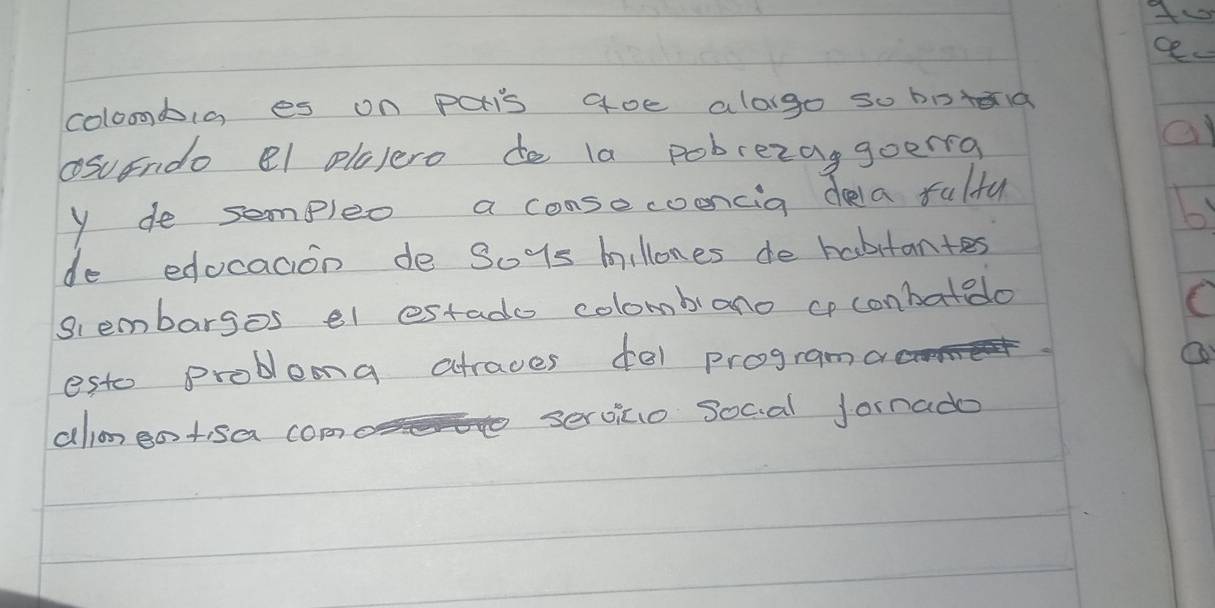 coloombia es un país qoe alargo so bistoria
osufrido el plajero de la pobrezag goerra
y de sempleo a consecoencia dela falta
de edocación de Soys millones de habitantes
siembargos el estado colombiano a conbatido
esto problema atraves del programa
alimentisa como servicio Social jornado